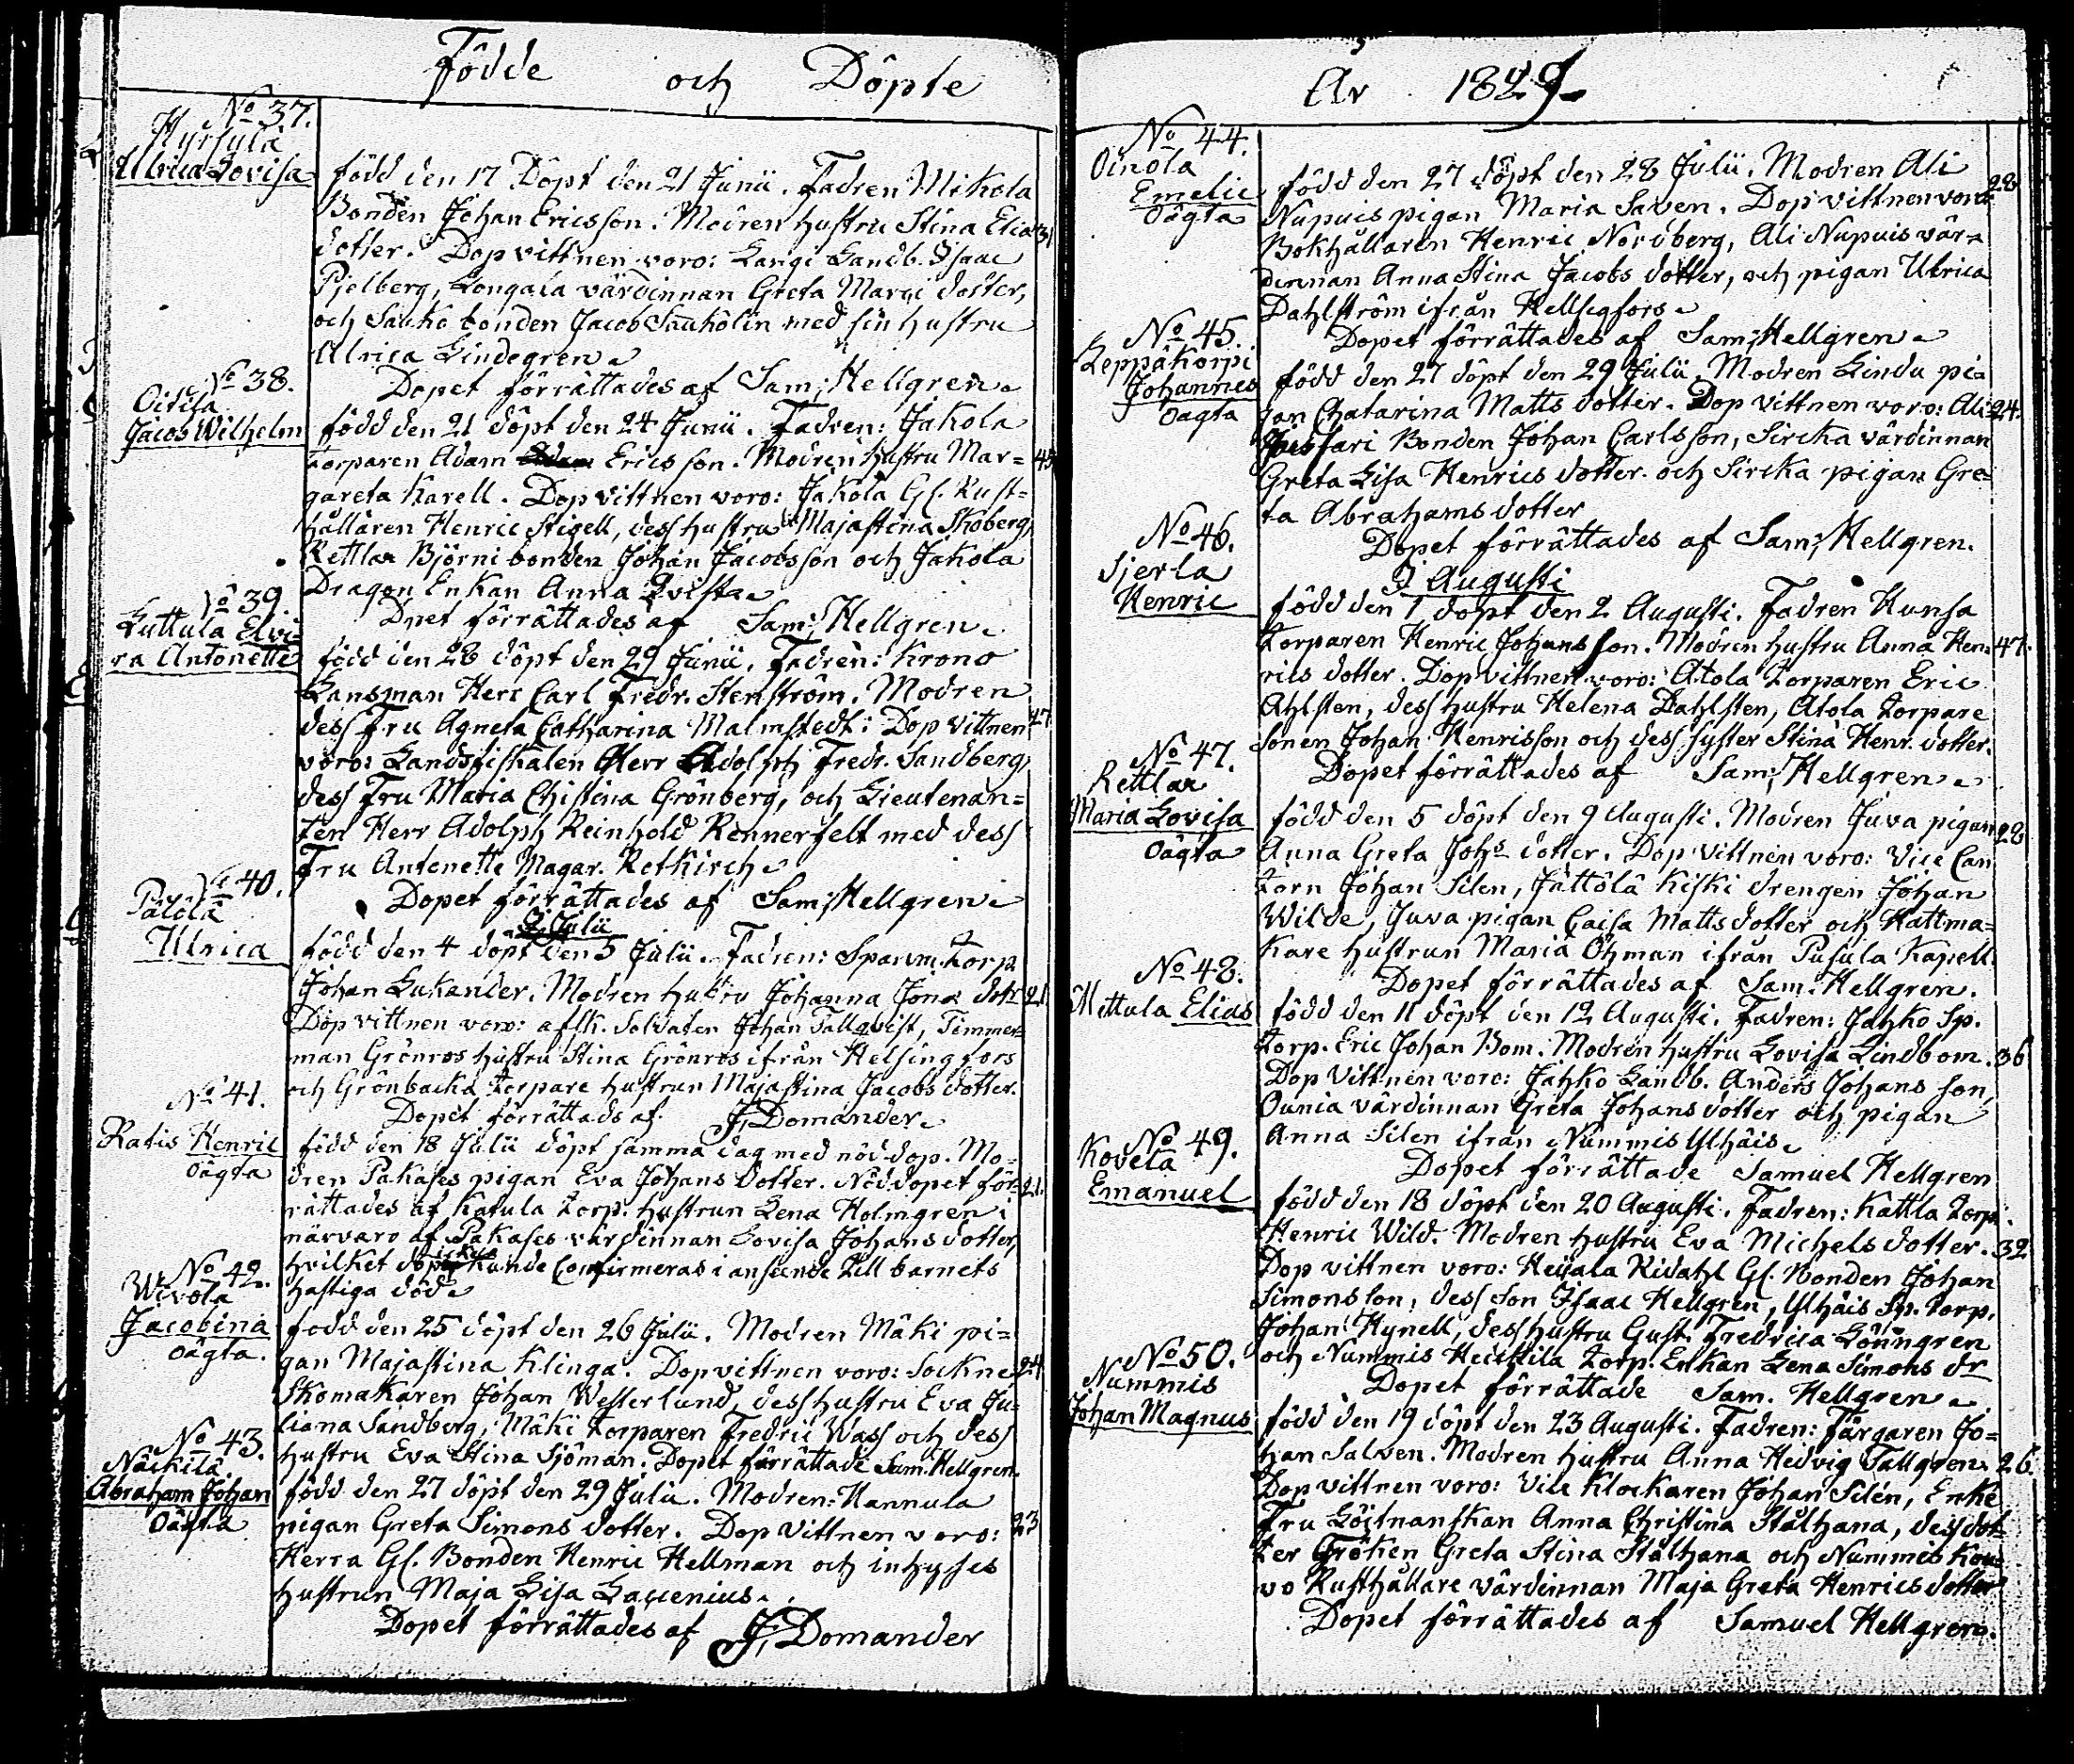 Födde och Döpte
No 37.
Hyrsulä
Ulrica Lovisa
född den 17 Döpt den 21 Junii. Fadren Mikola
Bonden Johan Ericsson. Modren hustru Stina Elias 31
dotter. Dop vittnen voro: Langi Landb. Isaac
Pjelberg, Longala värdinnan Greta Marci dotter,
och Sauko bonden Jacob Saukolin med sin hustru
Ulrica Lindegren.
Dopet förrättades af Sam: Hellgren.
No 38.
Oitila
Jacob Wilhelm
född den 21 döpt den 24 Junii. Fadren: Jakola
torparen Adam Ericsson. Modren hustru Mar= 45
gareta Karell. Dop vittnen voro: Jakola Gl. Rust=
hållaren Henric Stigell, dess hustru Majastina Skoberg,
Rettlax Björni bonden Johan Jacobsson och Jakola
Dragon Enkan Anna Qvist.
Dpet förrättades af Sam: Hellgren.
No 39.
Luttula Elvi=
ra Antonette
född den 28 döpt den 29 Junii. Fadren: Krono
Lansman Herr Carl Fredr. Stenström. Modren
dess Fru Agneta Catharina Malmstedt: Dop vittnen 47
voro: Landsfiskalen Herr Adolph Fredr. Sandberg,
dess Fru Maria Chistina Grönberg, och Lieutenan=
ten Herr Adolph Reinhold Rennerfelt med dess
Fru Antonette Magar. Retkirch.
Dopet förrättades af Sam: Hellgren.
No 40.
Pälölä
Ulrica
I Julii
född den 4 döpt den 5 Julii. Fadren: Sparvm. Torp
Johan Lukander. Modren hustru Johanna Jona dotr 21
Dop vittnen voro: afsk. Soldaten Johan Tallqvist, Timmer=
man Grönros hustru Stina Grönros ifrån Helsingfors
och Grönbacka torpare hustrun Majastina Jacobs dotter.
Dopet förrättads af J. Domander.
No 41.
Ratis Henric
Oägta
född den 18 Julii döpt samma dag med nöd-dop. Mo=
dren Pakases pigan Eva Johans dotter. Nöddopet för= 21.
rättades af Katula torp. hustrun Lena Holmgren i
närvaro af Pakases värdinnan Lovisa Johans dotter,
hvilket dop icke kunde Confirmeras i anseende till barnets
hastiga död.
No 42.
Wivola
Jacobina
oägta.
född den 25 döpt den 26 Julii. Modren Mäki pi=
gan Majastina Klinga. Dop vittnen voro: Sockne 24
Skomakaren Johan Westerlund, dess hustru Eva Ju=
liana Sandberg, Mäki torparen Fredric Wass och dess
hustru Eva Stina Sjöman. Dopet förrättade Sam. Hellgren.
No 43.
Näckilä
Abraham Johan
Oägta
född den 27 döpt den 29 Julii. Modren: Hannula
pigan Greta Simons dotter. Dop vittnen voro: 23
Herra Gl. Bonden Henric Hellman och inhyses
hustrun Maja Lisa Laurenius.
Dopet förrättades af J. Domander
År 1829
No 44.
Oinola
Emelie
Oägta
född den 27 döpt den 28 Julii. Modren Ali
Nupuis pigan Maria Saven. Dop vittnen voro 28
Bokhållaren Henric Nordberg, Ali Nupuis vär=
dinnan Anna Stina Jacobs dotter, och pigan Ulrica
Dahlström ifrån Hellsegfors.
Dopet förrättades af Sam: Hellgren.
No 45.
Leppäkorpi
Johannes
Oägta
född den 27 döpt den 29 Julii. Modren Lindu pi=
gan Chatarina Matts dotter. Dop vittnen voro: Ali 24.
Bonden Johan Carlsson, Sircka värdinnan
Greta Lisa Henrics dotter och Sircka pigan Gre=
ta Abrahams dotter
Dopet förrättades af Sam: Hellgren.
No 46.
Sjerla
Henric
I Augusti
född den 1 döpt den 2 Augusti. Fadren Hunsa
torparen Henric Johansson. Modren hustru Anna Hen= 47.
rics dotter. Dop vittnen voro: Atola torparen Eric
Ahlsten, dess hustru Helena Dahlsten, Atola torpare
sonen Johan Henrisson och des syster Stina Henr. dotter.
Dopet förrättades af Sam: Hellgren.
No 47.
Rettlax
Maria Lovisa
Oägta
född den 5 döpt den 9 Augusti. Modren Juva pigan 28
Anna Greta Johs dotter. Dop vittnen voro: Vice Can
torn Johan Silen, Jättölä Kiski drengen Johan
Wilde, Juva pigan Caisa Matts dotter och Hattma=
kare hustrun Maria Öhman ifrån Pusula Kapell.
Dopet förrättades af Sam: Hellgren.
No 48.
Mettula Elias
född den 11 döpt den 12 Augusti. Fadren: Jahko Sp.
torp. Eric Johan Bom. Modren hustru Lovisa Lindbom. 36
Dop vittnen voro: Jahko Landb. Anders Johansson,
Ounia värdinnan Greta Johans dotter och pigan
Anna Silen ifrån Nummis Ylhäis.
Dopet förrättade Samuel Hellgren
No 49.
Kovela
Emanuel
född den 18 döpt den 20 Augusti. Fadren: Kattla torp.
Henric Wild. Modren hustru Eva Michels dotter. 32
Dop vittnen voro: Heijala Ridahl Gl. Bonden Johan
Simonsson, dess son Isaac Hellgren, Ylhäis Sp. torp.
Johan Hynell, dess hustru Gust. Fredrica Lönngren
och Nummis Heickilä torp. Enkan Lena Simons dr
Dopet förrättade Sam. Hellgren.
No 50.
Nummis
Johan Magnus
född den 19 döpt den 23 Augusti. Fadren: Färgaren Jo=
han Salven. Modren hustru Anna Hedvig Tallgren. 26.
Dop vittnen voro: Vice Klockaren Johan Silén, Enke
Fru Löjtnanskan Anna Christina Stålhana, dess dot=
ter Fröken Greta Stina Stålhana och Nummis Kou=
vo Rusthållare värdinnan Maja Greta Henrics dotter
Dopet förrättades af Samuel Hellgren.